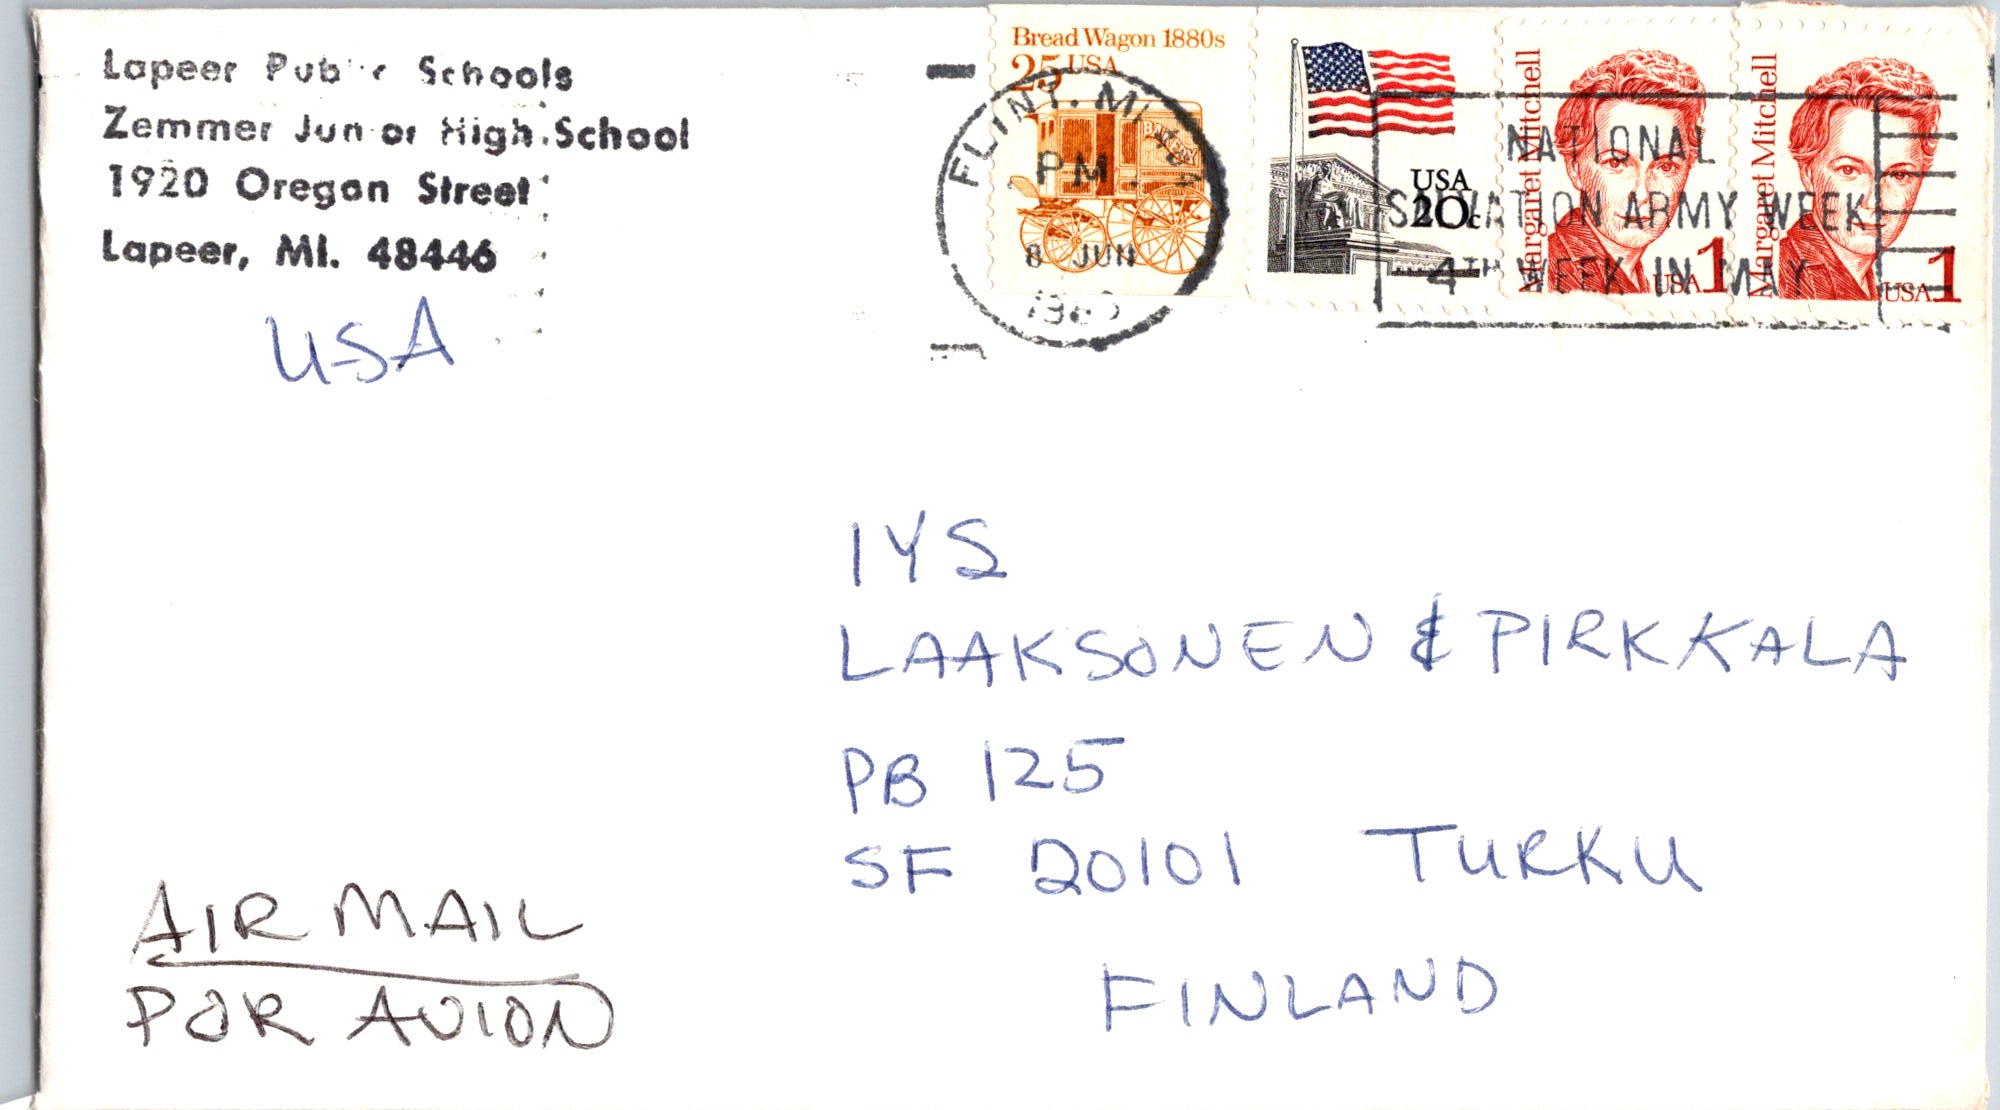 Lapeer Public Schools
Zemmer Junior High School
1920 Oregon Street
Lapeer, MI. 48446
USA
Bread Wagon 1880s
25 USA
USA
20c
Margaret Mitchell
USA 1
Margaret Mitchell
USA 1
FLINT, MI
PM
8 JUN
NATIONAL
SALVATION ARMY WEEK
4TH WEEK IN MAY
IYS
LAAKSONEN & PIRKKALA
PB 125
SF 20101 TURKU
FINLAND
AIR MAIL
PAR AVION